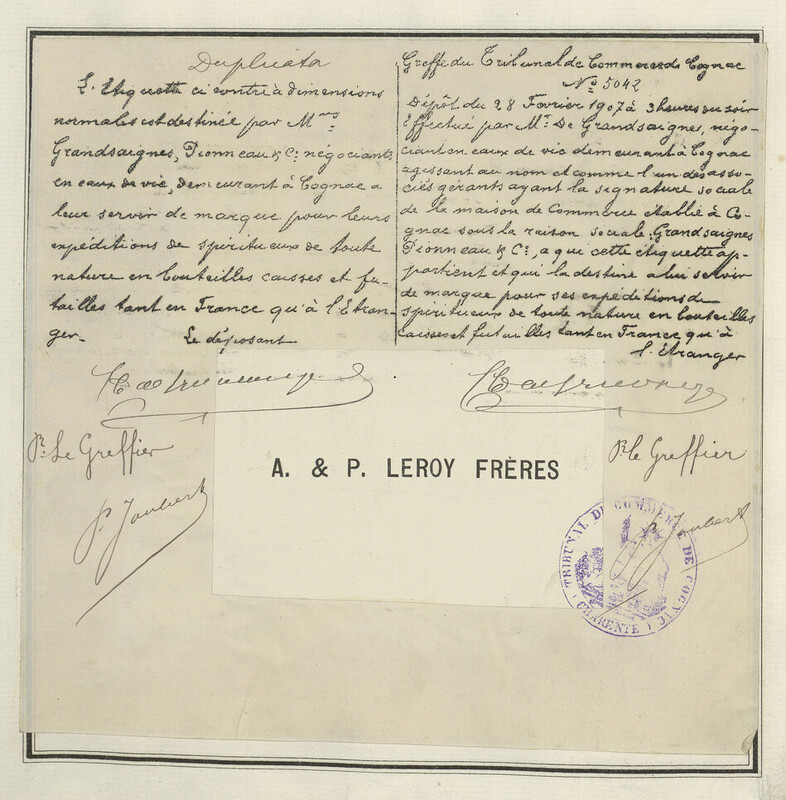 Duplicata
L'Etiquette ci contre à dimensions
normales est destinée par Mrs
Grandsaignes, Pionneau & Cie négociants
en eaux de vie, demeurant à Cognac a
leur servir de marque pour leurs
expéditions de spiritueux de toute
nature en bouteilles caisses et fu-
tailles tant en France qu'à l'Etran-
ger.
Le déposant
Pr Le Greffier
P. Joubert
Greffe du Tribunal de Commerce de Cognac
No 5042
Dépôt du 28 Fevrier 1907 à 3 heures du soir
Effectué par Mr. De Grandsaignes, négo-
ciant en eaux de vie demeurant à Cognac
agissant au nom et comme l'un des asso-
ciés gérants ayant la signature sociale
de la maison de Commerce établie à Co-
gnac sous la raison sociale Grandsaignes
Pionneau & Cie, a qui cette étiquette ap-
partient et qui la destine a lui servir
de marque pour ses expéditions de
spiritueux de toute nature en bouteilles
caisses et futailles tant en France qu'à
l'Etranger
Pr le Greffier
P. Joubert
A. & P. LEROY FRÈRES
TRIBUNAL DE COMMERCE DE COGNAC
(CHARENTE)